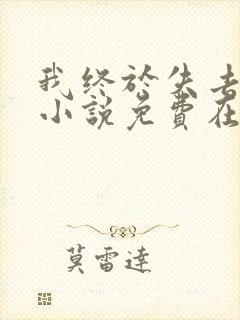 我終於失去
小說免費在
莫雷達